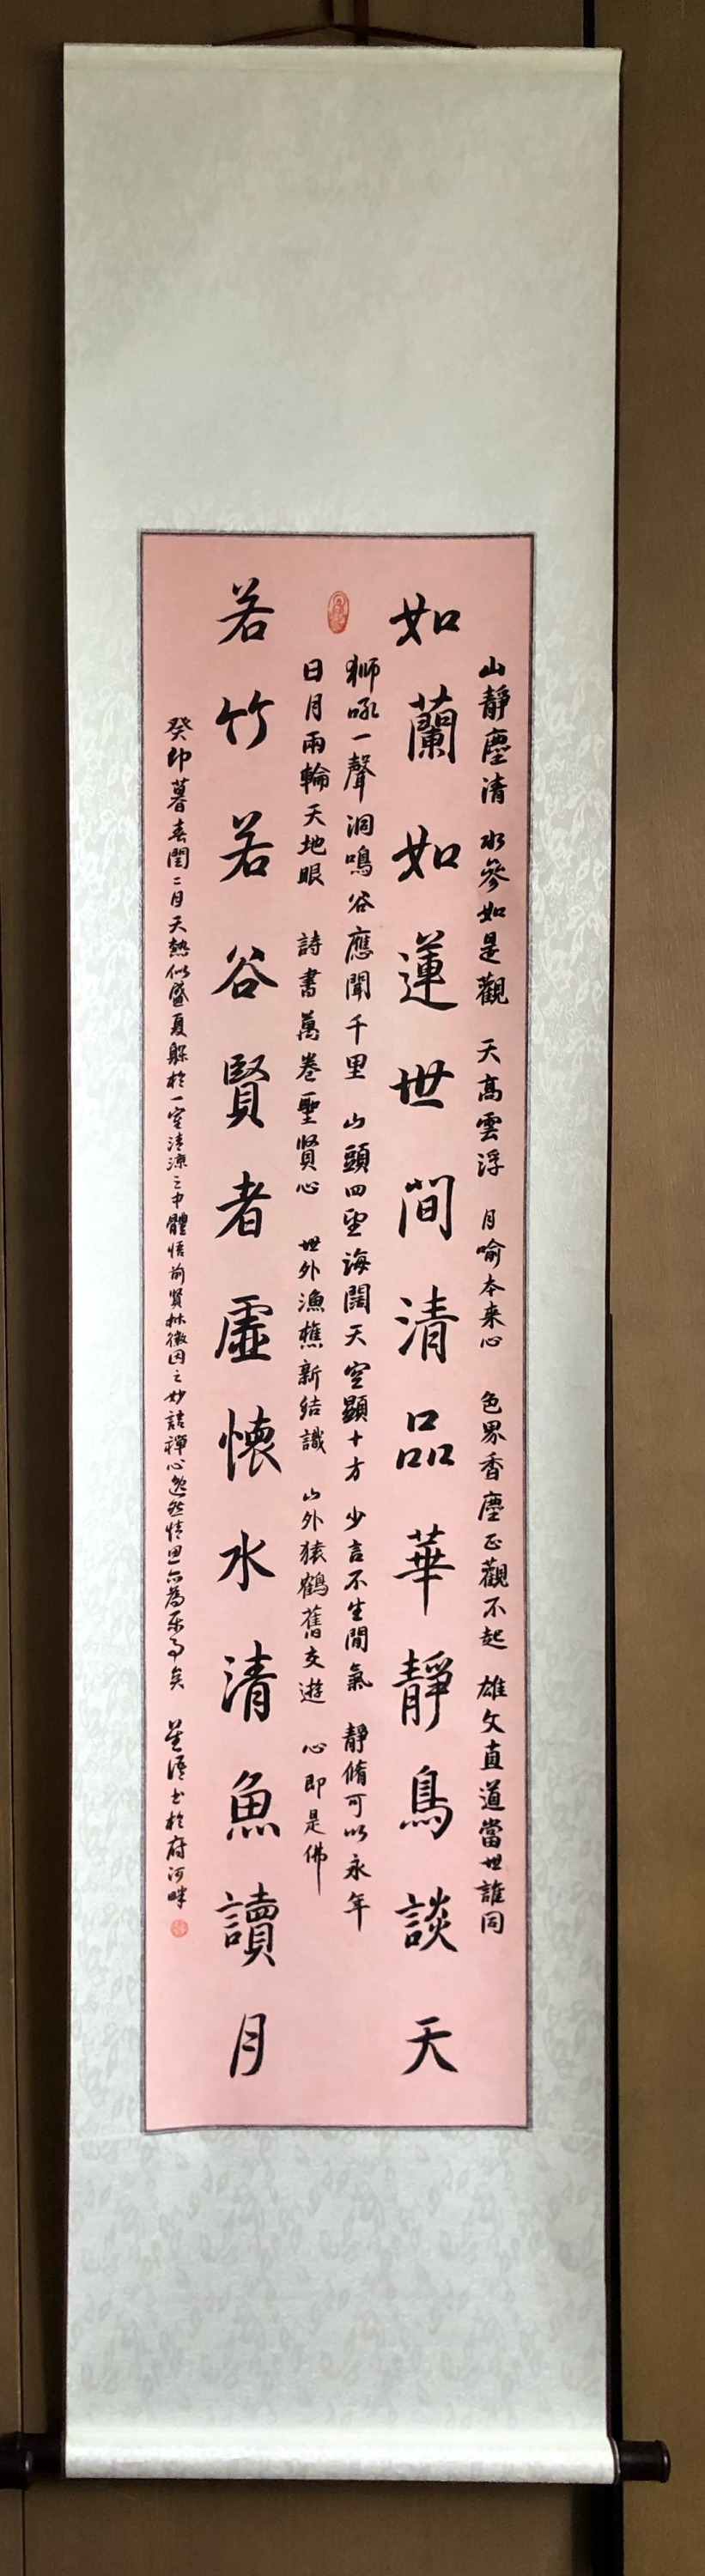 山靜塵清 水參如是觀 天高雲浮 月喻本来心 色界香塵正觀不起 雄文直道當世誰同
如蘭如蓮世間清品華靜鳥談天
獅吼一聲洞鳴谷應聞千里 山頭四望海闊天空顯十方 少言不生閒氣 靜脩可以永年
日月兩輪天地眼 詩書萬卷聖賢心 世外漁樵新結識 山外猿鶴舊交遊 心即是佛
若竹若谷賢者虛懷水清魚讀月
癸卯暮春閏二月天熱似盛夏躲於一室清涼之中體悟前賢林徽因之妙語禪心逸然情思亦為乐事矣 書於府河畔